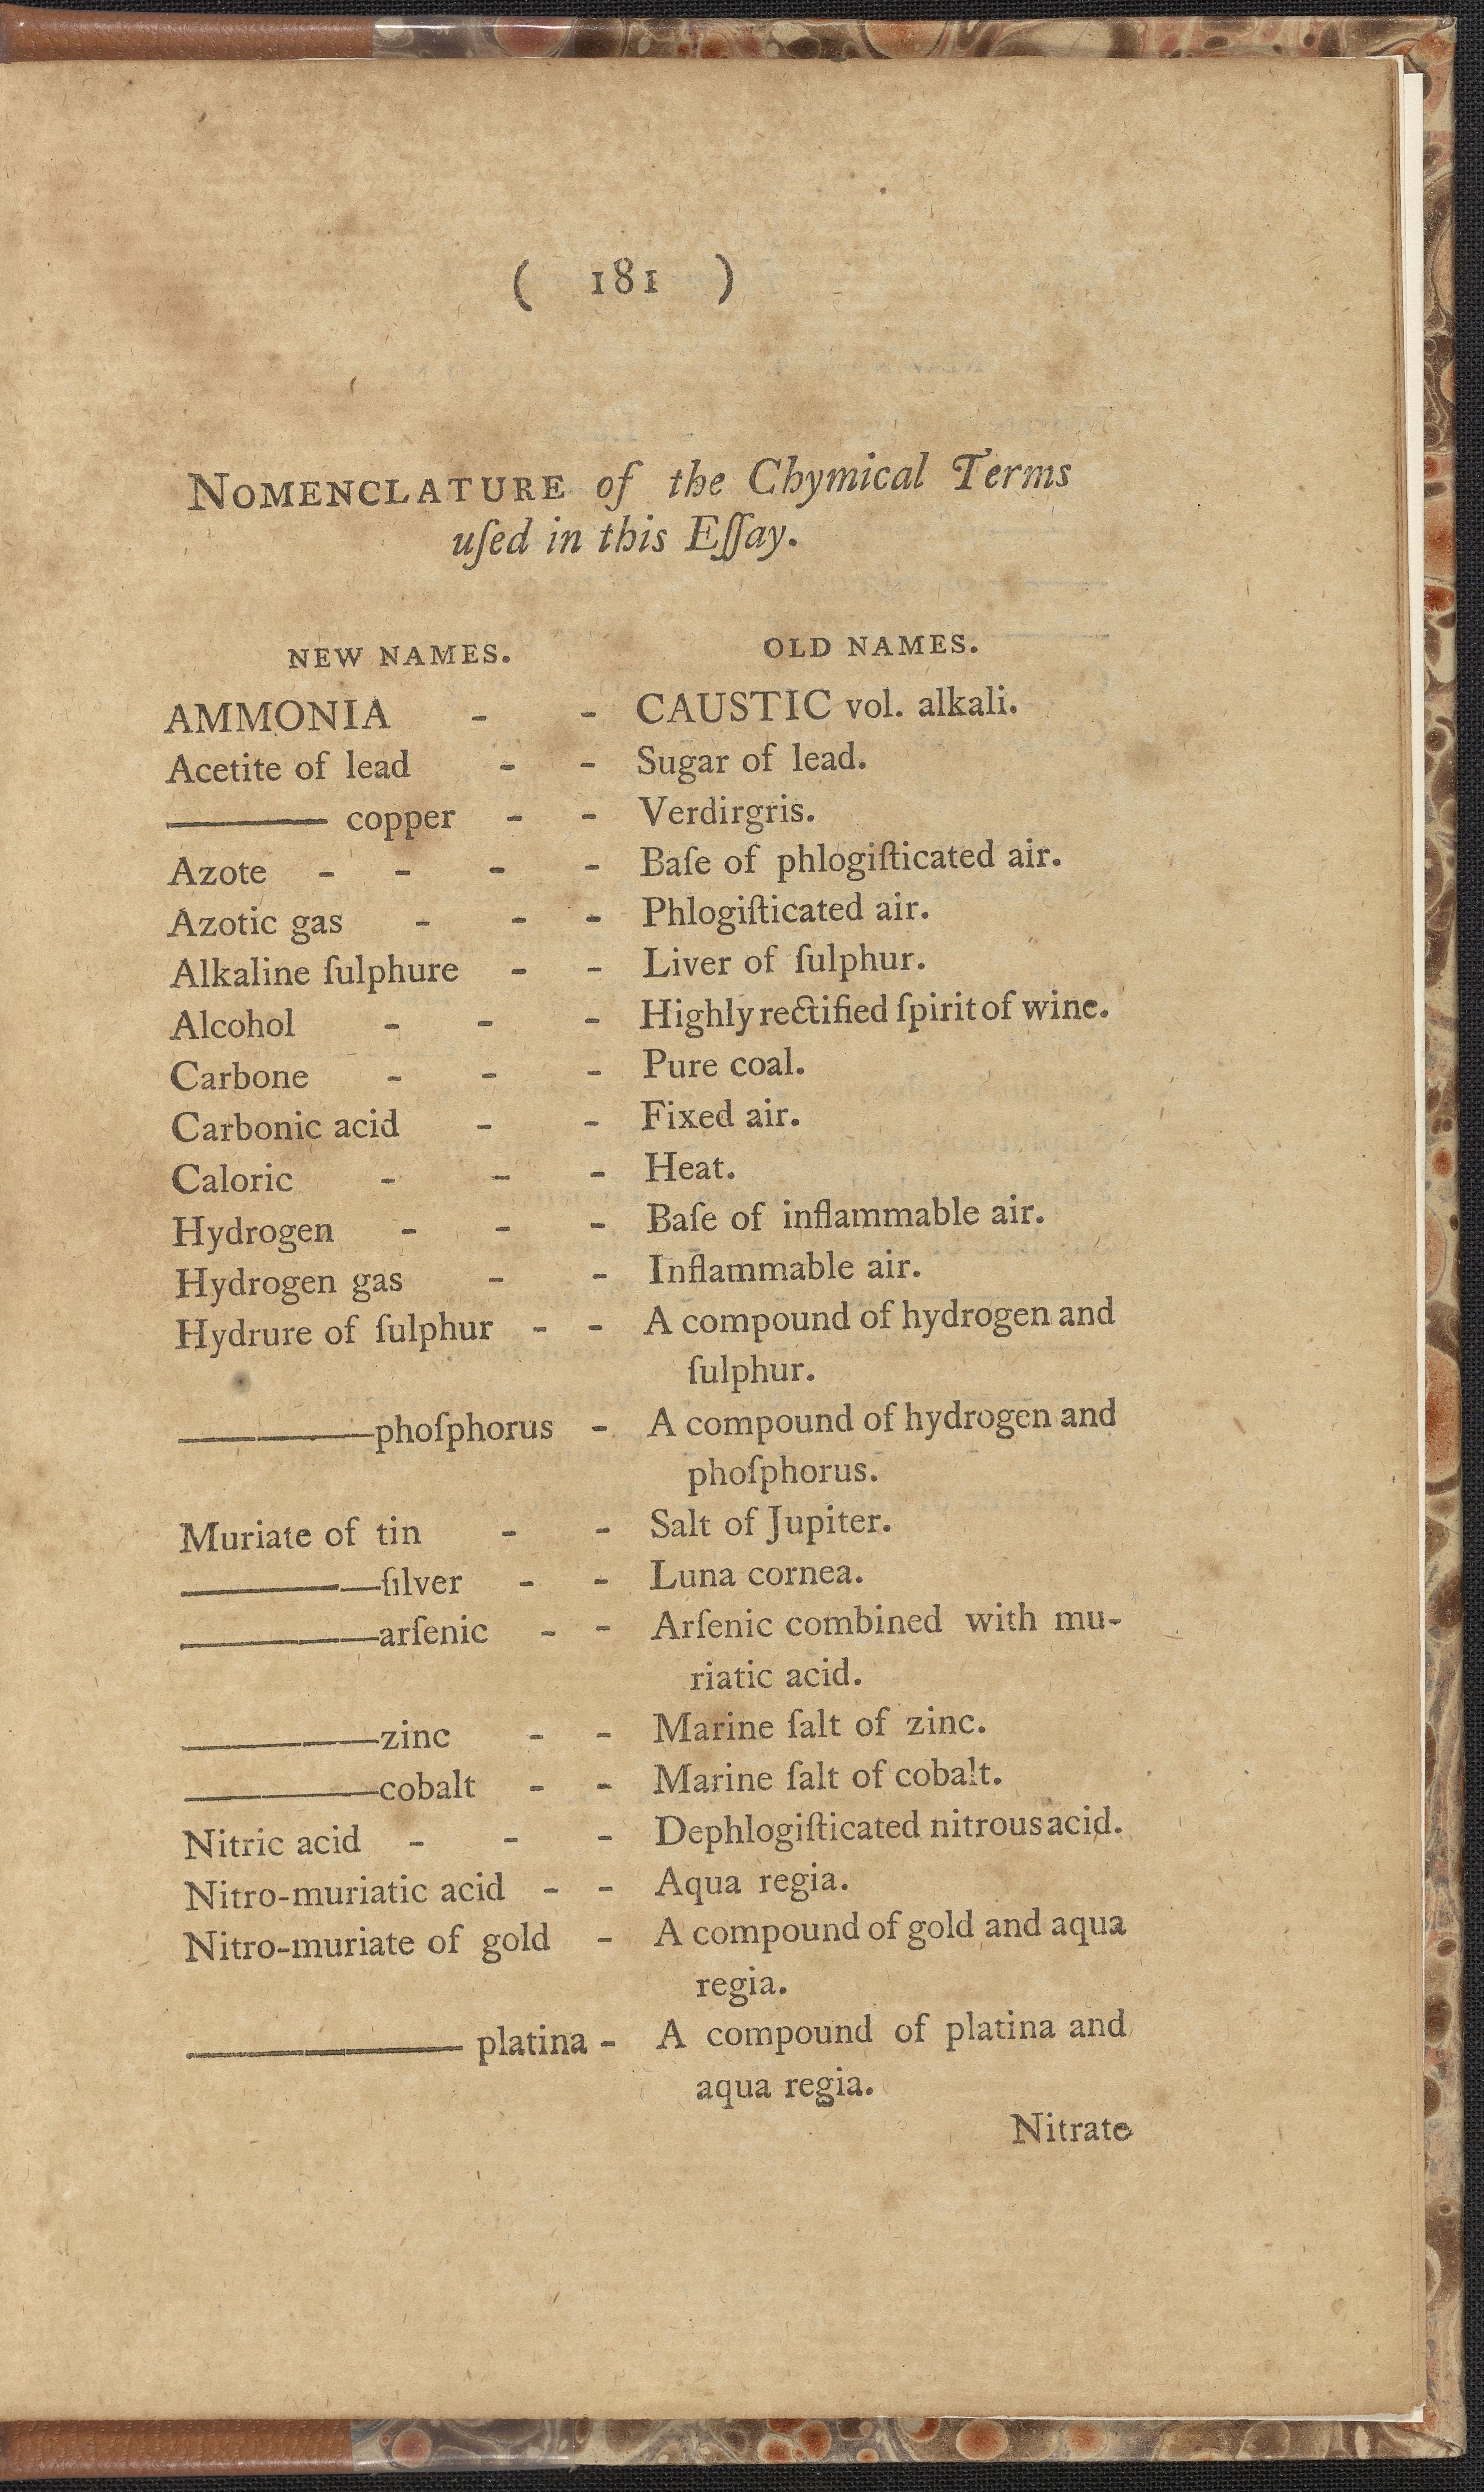 ( 181 )
NOMENCLATURE of the Chymical Terms
uſed in this Eſſay.
NEW NAMES. OLD NAMES.
AMMONIA - - CAUSTIC vol. alkali.
Acetite of lead - - Sugar of lead.
——— copper - - Verdirgris.
Azote - - - - Baſe of phlogiſticated air.
Azotic gas - - - Phlogiſticated air.
Alkaline ſulphure - - Liver of ſulphur.
Alcohol - - - Highly rectified ſpirit of wine.
Carbone - - - Pure coal.
Carbonic acid - - Fixed air.
Caloric - - - Heat.
Hydrogen - - - Baſe of inflammable air.
Hydrogen gas - - Inflammable air.
Hydrure of ſulphur - - A compound of hydrogen and
ſulphur.
———phoſphorus - A compound of hydrogen and
phoſphorus.
Muriate of tin - - Salt of Jupiter.
———ſilver - - Luna cornea.
———arſenic - - Arſenic combined with mu-
riatic acid.
———zinc - - Marine ſalt of zinc.
———cobalt - - Marine ſalt of cobalt.
Nitric acid - - - Dephlogiſticated nitrous acid.
Nitro-muriatic acid - - Aqua regia.
Nitro-muriate of gold - A compound of gold and aqua
regia.
——— platina - A compound of platina and
aqua regia.
Nitrate